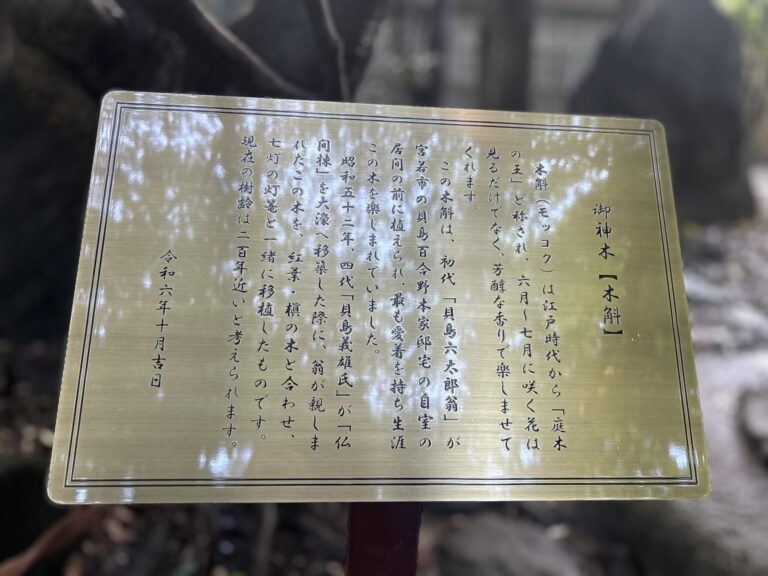 御神木【木斛】
木斛(モッコク)は江戸時代から「庭木
の王」と称され、六月～七月に咲く花は
見るだけでなく、芳醇な香りで楽しませて
くれます。
この木斛は、初代「貝島六太郎翁」が
宮若市の貝島百合野本家邸宅の自室の
居間の前に植えられ、最も愛着を持ち生涯
この木を楽しまれていました。
昭和五十二年、四代「貝島義雄氏」が「仏
間棟」を大濠へ移築した際に、翁が親しま
れたこの木を、紅葉・槇の木と合わせ、
七灯の灯篭と一緒に移植したものです。
現在の樹齢は二百年近いと考えられます。
令和六年十月吉日